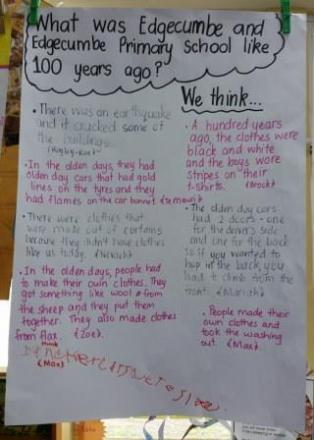 What was Edgecumbe and
Edgecumbe Primary school like
100 years ago?
• There was an earthquake
and it cracked some of
the buildings.
• In the olden days, they had
olden day cars that had gold
lines on the tyres and they
had flames on the car bonnet
• There were clothes that
were made out of curtains
because they didn't have clothes
like us today.
• In the olden days, people had
to make their own clothes. They
got something like wool from
the sheep and they put them
together. They also made clothes
from flax. (Zoe).
I think
(Max)
We think...
• A hundred years
ago, the clothes were
black and white
and the boys wore
stripes on their
t-shirts. (Brock)
• The olden day cars
had 2 doors - one
for the driver's side
and one for the back
so if you wanted to
hop in the back, you
had to climb from the
front. (Mariah)
• People made their
own clothes and
took the washing
out. (Max)